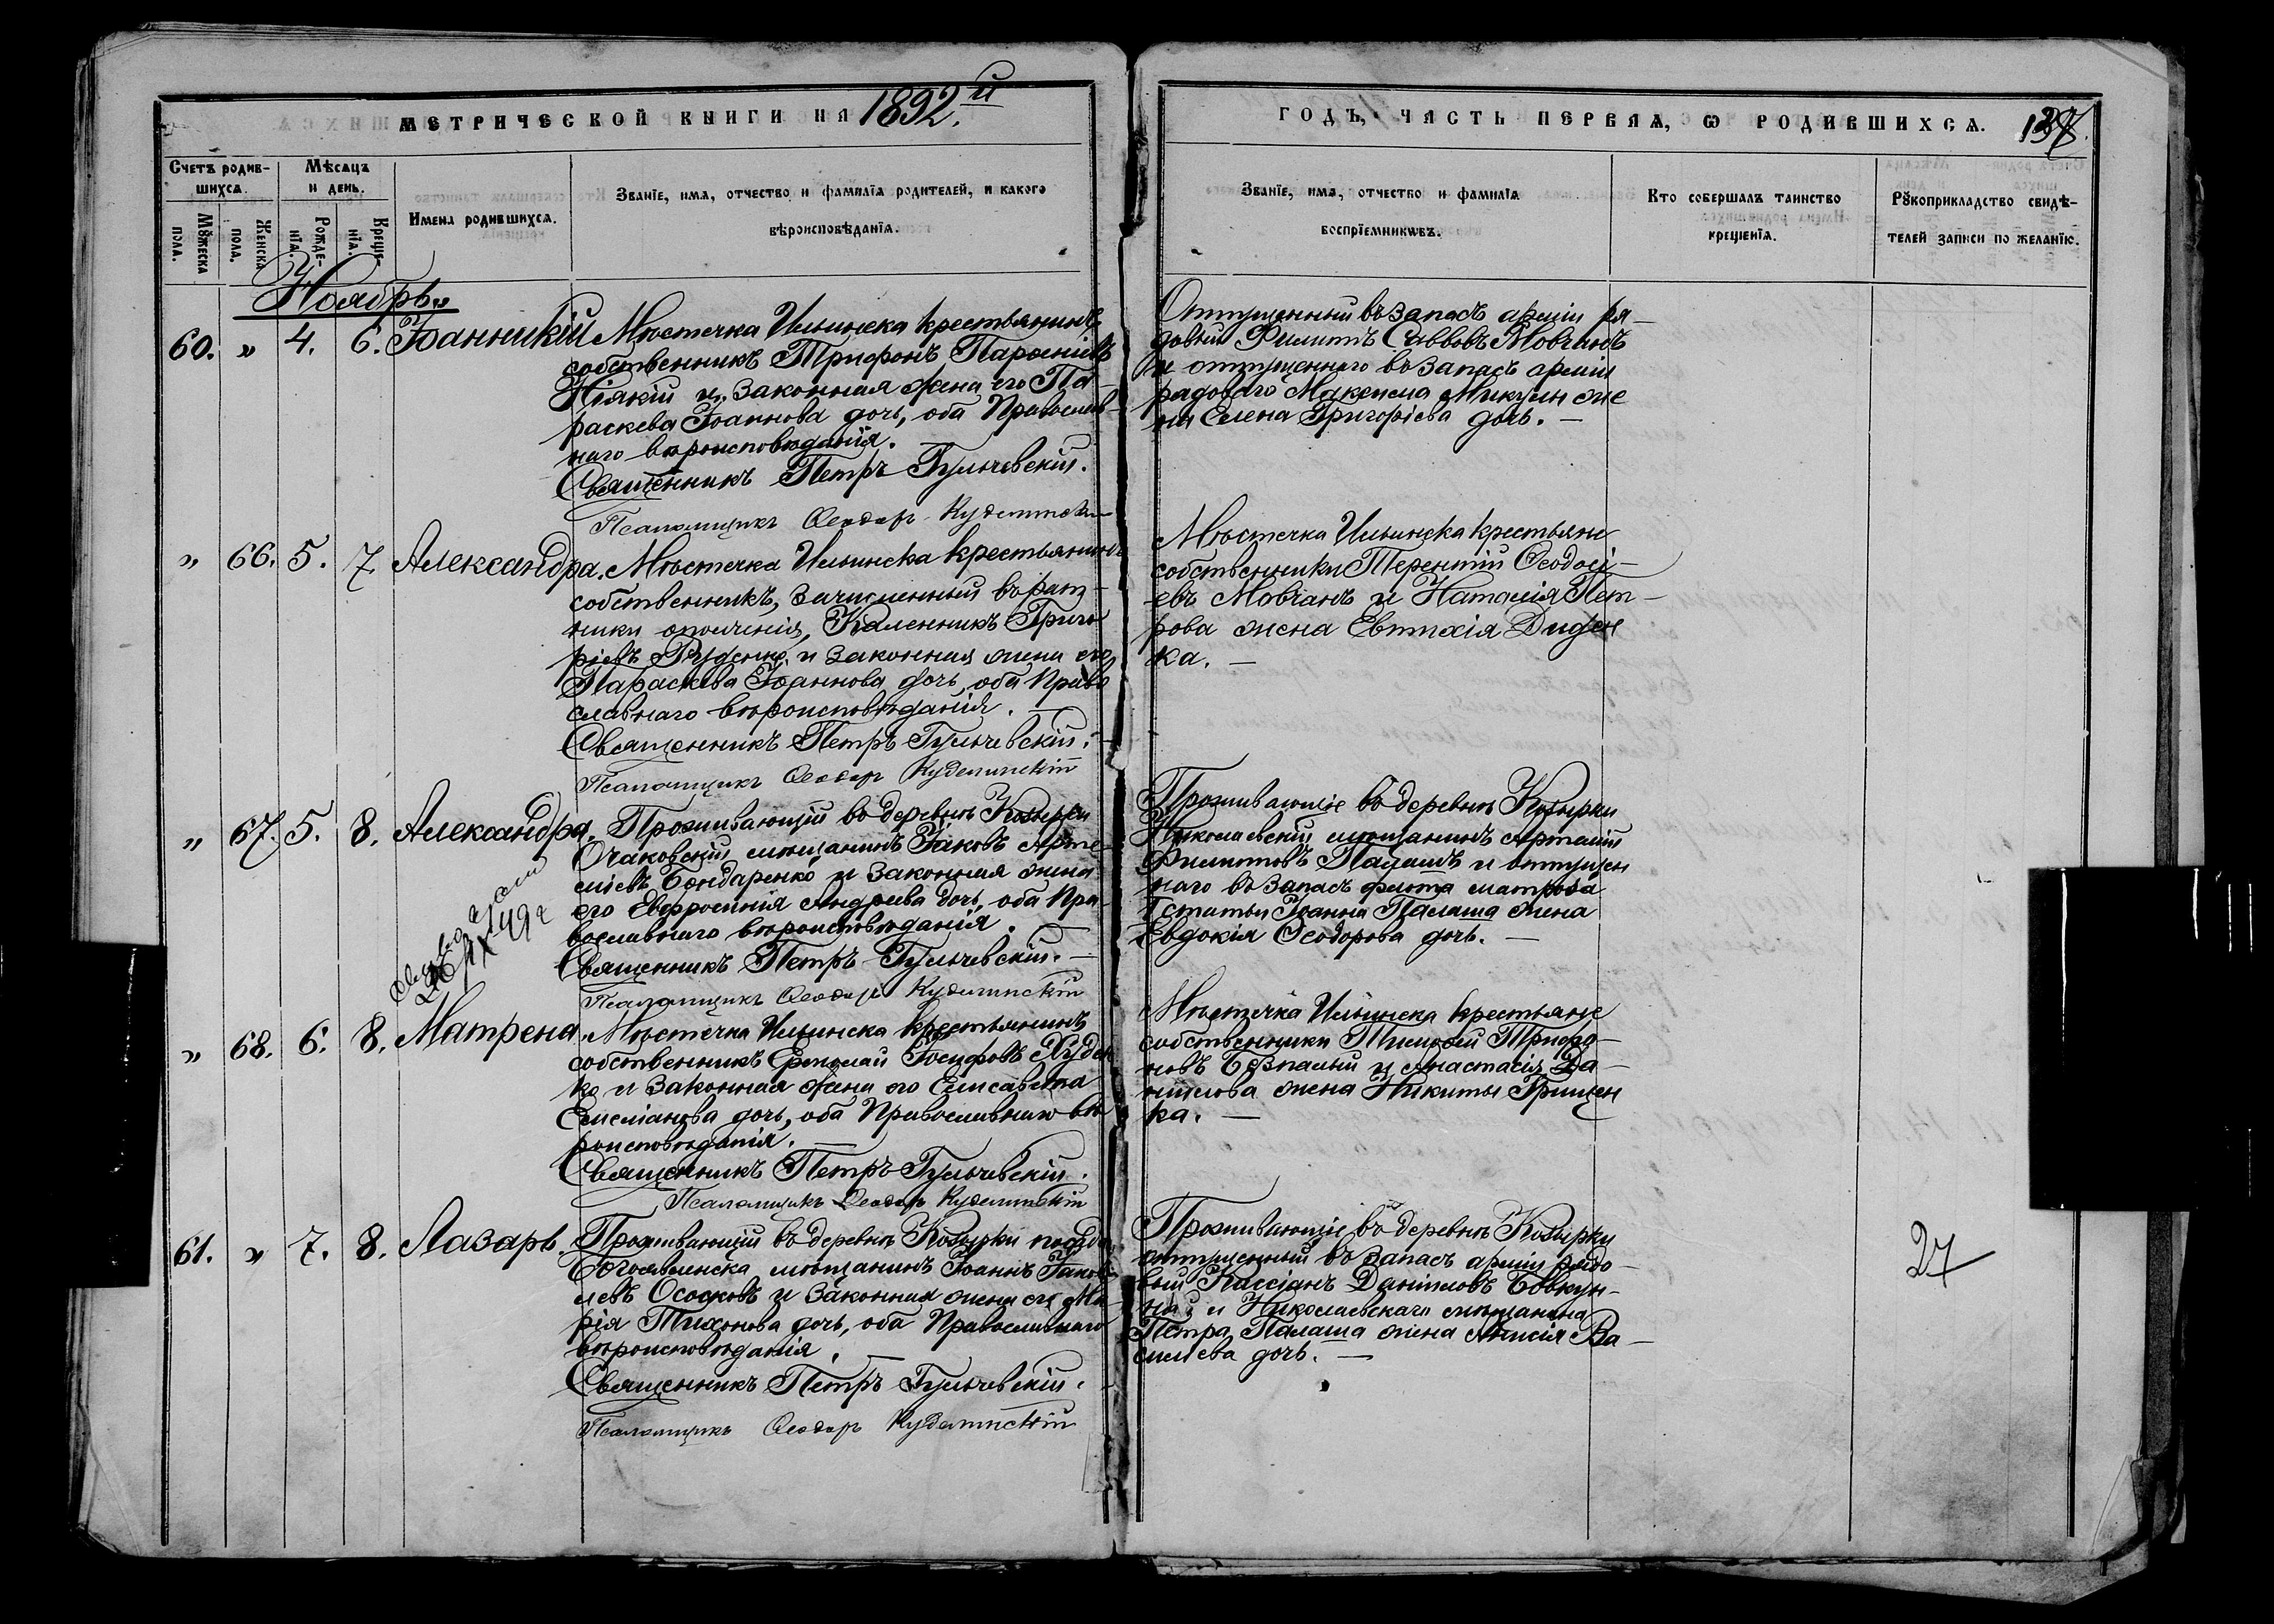 МЕТРИЧЕСКОЙ КНИГИ НА 1892.й
ГОДЪ, ЧАСТЬ ПЕРВАЯ, Ѡ РОДИВШИХСЯ.
Счетъ родив-
шихся.
Мѣсяцъ
и день.
Имена родившихся.
Званіе, имя, отчество и фамилія родителей, и какого
вѣроисповѣданія.
Мꙋжеска
пола.
Женска
пола.
Рожде-
нія.
Креще-
нія.
Званіе, имя, отчество и фамилія
воспріемниковъ.
Кто совершалъ таинство
крещенія.
Рꙋкоприкладство свидѣ-
телей записи по желанію.
Ноябрь
60. " 4. 6. Іоанникій Мѣстечка Ильинска крестьянинъ
собственникъ Трифонъ Парѳеніевъ
и законная жена его Па-
раскева Іоаннова дочь, оба Православ-
наго вѣроисповѣданія.
Священникъ Петръ Гульчевскій.
Псаломщикъ Ѳеодоръ
Отпущенный въ запасъ арміи ря-
довый Филиппъ Саввовъ Мовчанъ
и отпущеннаго въ запасъ арміи
рядоваго Максима Микулы же
на Елена Григоріева дочь. —
" 66. 5. 7. Александра. Мѣстечка Ильинска крестьянинъ
собственникъ, зачисленный въ рат-
ники ополченія, Каленникъ Григо
ріевъ Руденко и законная жена его
Параскева Іоаннова дочь, оба Право
славнаго вѣроисповѣданія. —
Священникъ Петръ Гульчевскій. —
Псаломщикъ Ѳеодоръ Куделинскій
Мѣстечка Ильинска крестьяне
собственники Терентій Ѳеодосі-
евъ Мовчанъ и Наталія Пет-
рова жена Евтихія Диден
ка. —
" 67. 5. 8. Александра. Проживающій въ деревнѣ Козырки
Очаковскій мѣщанинъ Іаковъ Арте-
міевъ Бондаренко и законная жена
его Евфросинія Андреева дочь, оба Пра-
вославнаго вѣроисповѣданія. —
Священникъ Петръ Гульчевскій. —
Псаломщикъ Ѳеодоръ Куделинскій
Проживающіе въ деревнѣ Козырки
Николаевскій мѣщанинъ Артемій
Филипповъ Палашъ и отпущен
наго въ запасъ флота матроса
1 статьи Іоанна Палаша жена
Евдокія Ѳеодорова дочь. —
IX 49 г
" 68. 6. 8. Матрена. Мѣстечка Ильинска крестьянинъ
собственникъ Ермолай Іосифовъ Худен
ко и законная жена его Елисавета
Емеліанова дочь, оба Православнаго вѣ
роисповѣданія. —
Священникъ Петръ Гульчевскій.
Псаломщикъ Ѳеодоръ Куделинскій
Мѣстечка Ильинска крестьяне
собственники Тимоѳей Трифо-
новъ Безпалый и Анастасія Да-
ніилова жена Никиты Грищен
ка. —
61. " 7. 8. Лазарь. Проживающій въ деревнѣ Козырки посада
Богоявленска мѣщанинъ Іоаннъ Іаков
левъ Осодковъ и законная жена его Ма-
рія Тихонова дочь, оба Православнаго
вѣроисповѣданія. —
Священникъ Петръ Гульчевскій.
Псаломщикъ Ѳеодоръ Куделинскій
Проживающіе въ деревнѣ Козырки
отпущенный въ запасъ арміи рядо-
вый Кассіанъ Даніиловъ Бовкун-
и Николаевскаго мѣщанина
Петра Палаша жена Анисія Ва-
сильева дочь. —
27